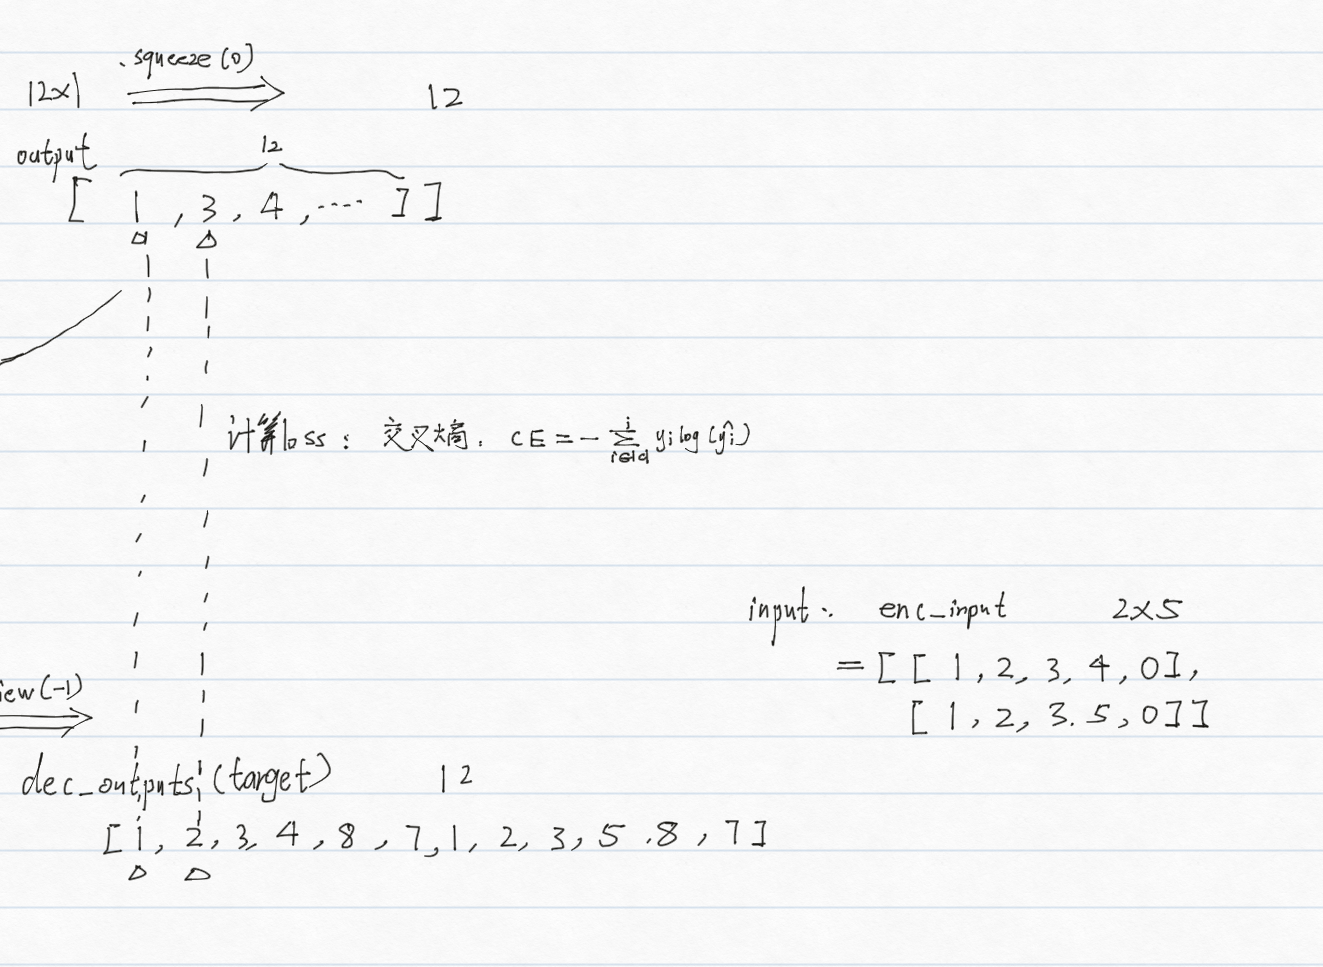 .squeeze(0)
12x1
12
output
12
[ 1 , 3 , 4 , ···· ] ]
计算loss: 交叉熵. CE = - Σ yi log(ŷi)
input: enc_input 2x5
= [ [ 1, 2, 3, 4, 0],
[ 1, 2, 3. 5, 0]]
iew(-1)
dec_outputs (target) 12
[1, 2, 3, 4, 8, 7, 1, 2, 3, 5 .8, 7]